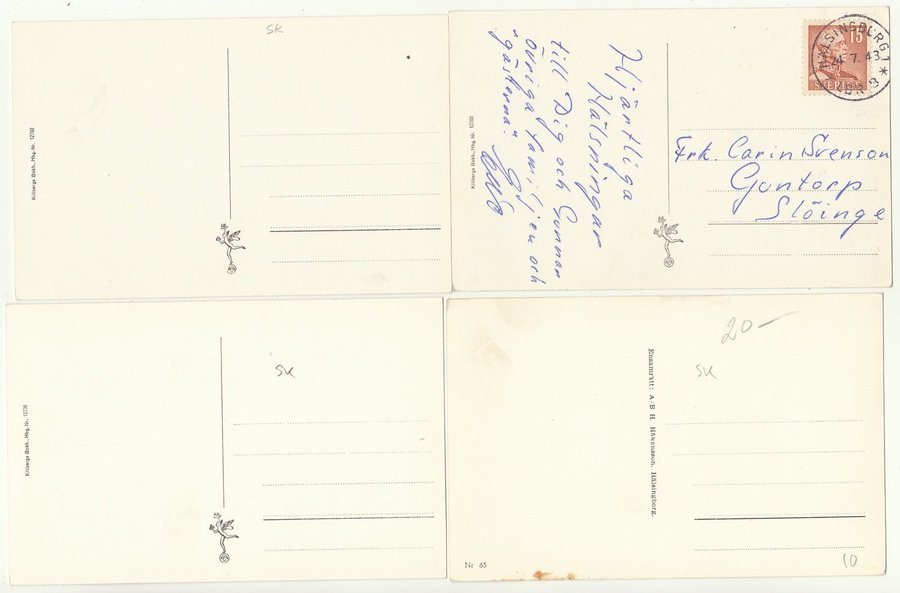 SK
Killbergs Bokh., Hbg. Nr. 12700
Killbergs Bokh., Hbg. Nr. 12700
Hjärtliga
Hälsningar
till Dig och Gunnar
övriga familjen och
"gästerna".
15
SVERIGE
HÄLSINGBORG 1
24.7.43
Frk. Carin Svenson
Gantorp
Slöinge
SK
Killbergs Bokh., Hbg. Nr. 12701
20-
SK
Ensamrätt: A/B H. Håkansson, Hälsingborg.
Nr 65
10